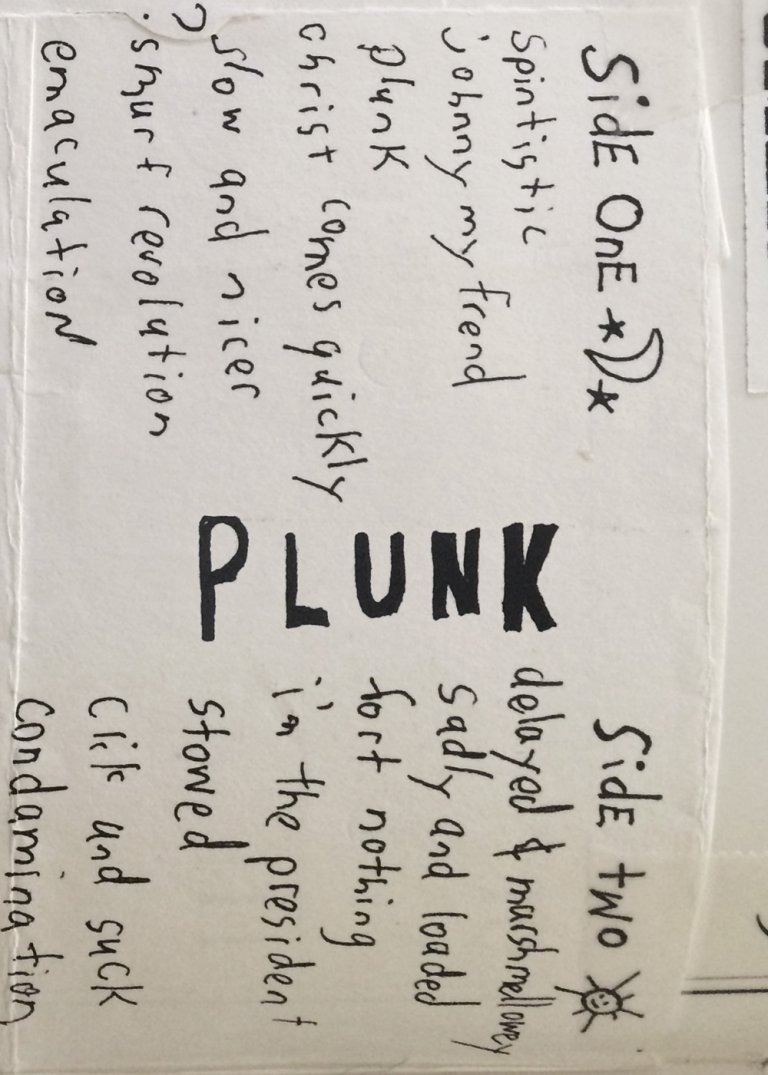 SidE OnE
Spintistic
johnny my frend
plunk
christ comes quickly
slow and nicer
? smurf revolution
emaculation
PLUNK
SidE two
delayed & marshmellowey
sadly and loaded
fort nothing
i'n the president
stowed
Click and suck
Condamination